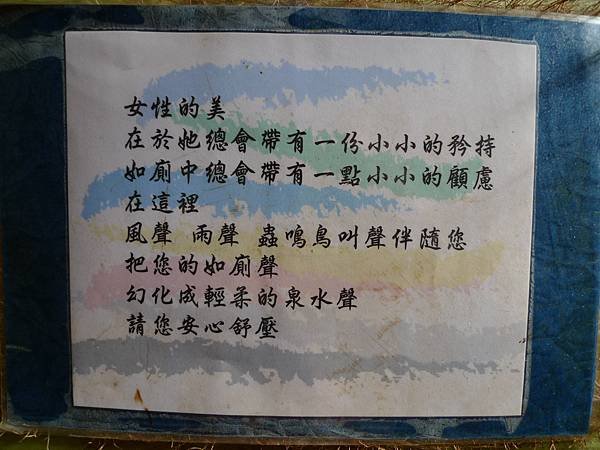 女性的美
在於她總會帶有一份小小的矜持
如廁中總會帶有一點小小的顧慮
在這裡
風聲 雨聲 蟲鳴鳥叫聲伴隨您
把您的如廁聲
幻化成輕柔的泉水聲
請您安心舒壓